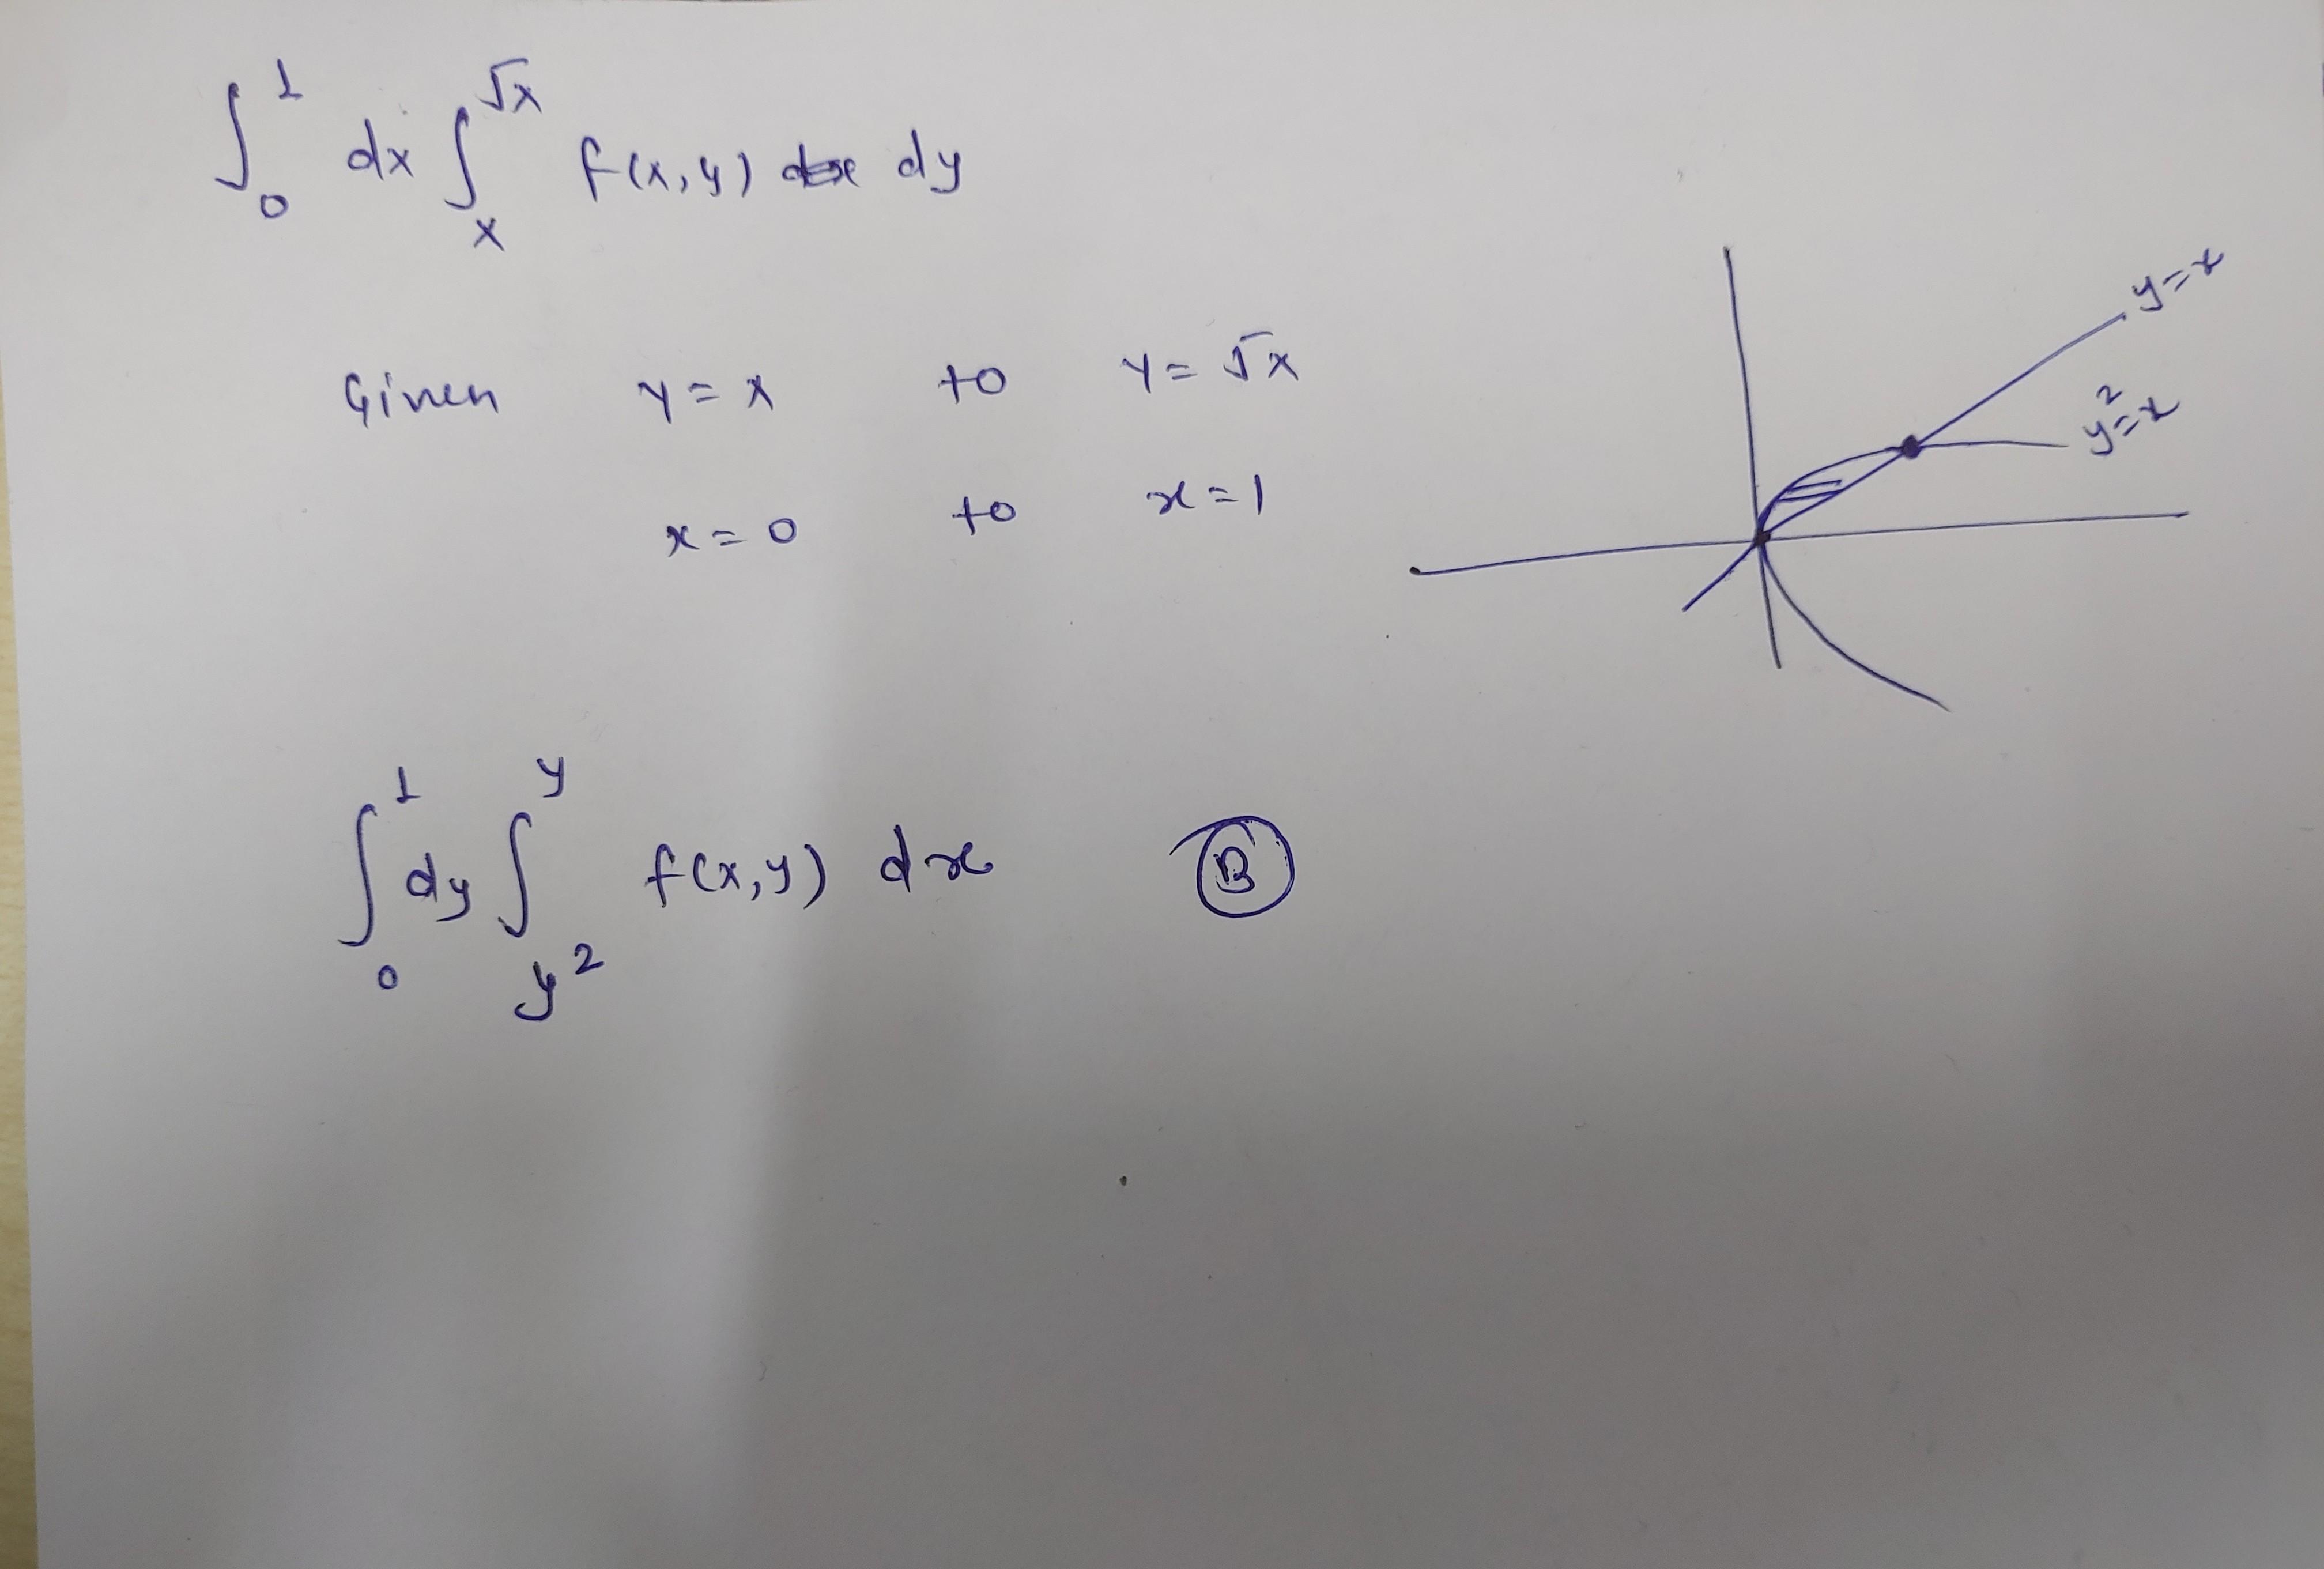 ∫₀¹ dx ∫ₓ^√x f(x,y) dy
Given y = x to y = √x
x = 0 to x = 1
y = x
y² = x
∫₀¹ dy ∫_y²^y f(x,y) dx Ⓑ